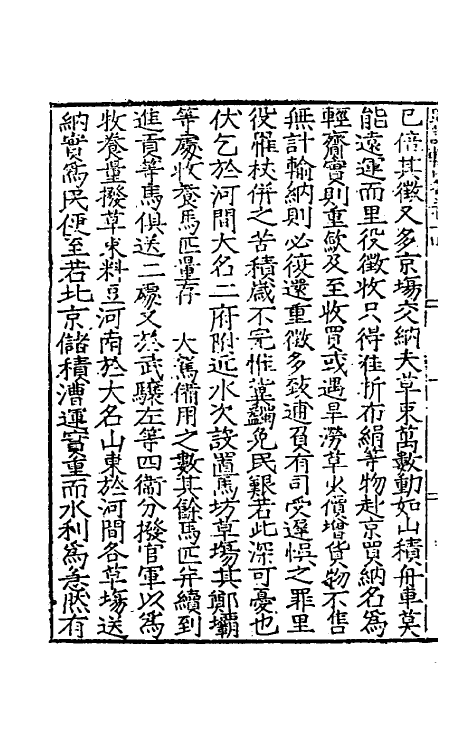 已倍其徵又多京場交納夫草束萬數動如山積舟車莫
能遠運而里役徵收只得准折布絹等物赴京買納名為
輕齎實則重歛及至收買或遇旱澇草少價增貨物不售
無計輸納則必復還重徵多致逋負有司受遲悮之罪里
役罹杖併之苦積歲不完惟冀蠲免民艱若此深可憂也
伏乞於河間大名二府附近水次設置馬坊草場其鄭壩
等處收養馬匹量存 大駕備用之數其餘馬匹并續到
進貢等馬俱送二處又於武驤左等四衛分撥官軍以為
牧養量撥草束料豆河南於大名山東於河間各草場送
納實為民便至若北京儲積漕運實重而水利為急然有